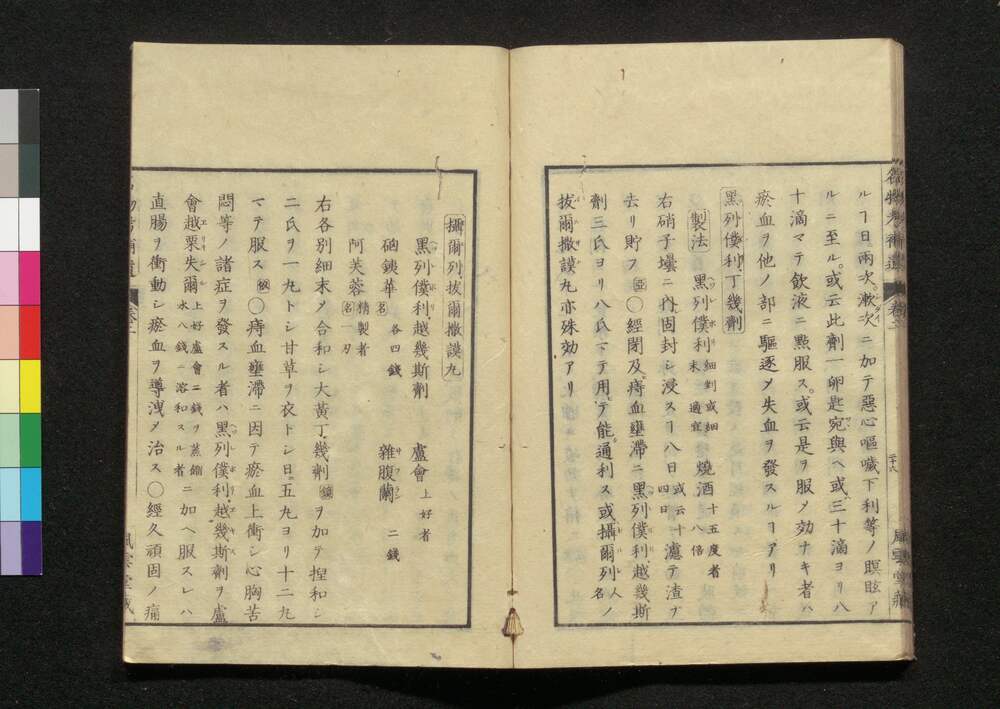 ルヿ日兩次。漱次ニ加テ惡心嘔噦下利等ノ瞑眩ア
ルニ至ル。或云此劑一卵匙宛與ヘ或三十滴ヨリ八
十滴マテ飲液ニ點服ス。或云是ヲ服メ効ナキ者ハ
瘀血ヲ他ノ部ニ驅逐メ失血ヲ發スルヿアリ
黑列僕利丁幾劑
製法 黑列僕利 細剉或細末適宜 燒酒 十五度者八倍
右硝子壜ニ內固封シ浸スヿ八日 或云十四日 濾テ渣ヲ
去リ貯フ 亞 〇經閉及痔血壅滯ニ黑列僕利越幾斯
劑三氏ヨリ八氏ヲ用テ能通利ス或攝爾列 人名 ノ
拔爾撒謨丸亦殊効アリ
攝爾列拔爾撒謨丸
黑列僕利越幾斯劑 蘆會 上好者
名 各四錢 雜腹蘭 二錢
阿芙蓉 精製者 一匁
右各別細末メ合和シ大黃丁幾劑 鏡 ヲ加テ捏和シ
二氏ヲ一丸トシ甘草ヲ衣トシ日。五丸ヨリ十二丸
マテ服ス 〇痔血壅滯ニ因テ瘀血上衝シ心胸苦
悶等ノ諸症ヲ發スル者ハ黑列僕利越幾斯劑ヲ盧
會越栗失爾 上好盧會二錢ヲ蒸餾水八錢ニ溶和スル者 ニ加ヘ服スレハ
直腸ヲ衝動シ瘀血ヲ導洩メ治ス〇經久頑固ノ痛